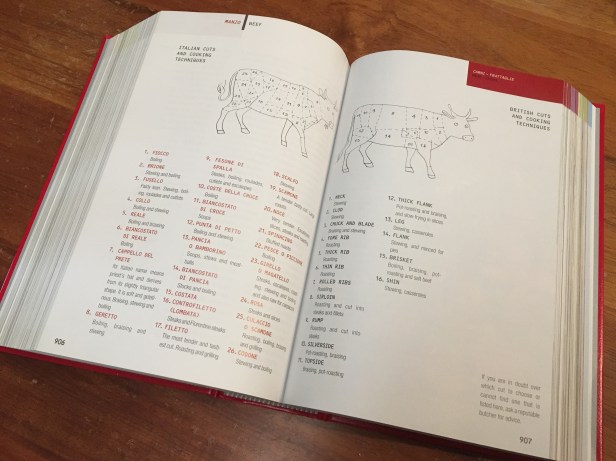 MANZO | BEEF
ITALIAN CUTS
AND COOKING
TECHNIQUES
1. FIOCCO
Boiling
2. BRIONE
Stewing and boiling
3. FUSELLO
Fairly lean. Stewing, boil-
ing, rissoles and cutlets
4. COLLO
Stewing and boiling
5. REALE
Boiling and braising
6. BIANCOSTATO
DI REALE
Boiling
7. CAPPELLO DEL
PRETE
Its Italian name means
priest's hat and derives
from its slightly triangular
shape. It is soft and gelati-
nous. Braising, stewing and
boiling
8. GERETTO
Boiling, braising and
stewing
9. FESONE DI
SPALLA
Steaks, frying, roulades,
cutlets and escalopes
10. COSTE DELLA CROCE
Boiling
11. BIANCOSTATO
DI CROCE
Soups
12. PUNTA DI PETTO
Boiling and stewing
13. PANCIA
O BAMBORINO
Soups, stews and meat-
balls
14. BIANCOSTATO
DI PANCIA
Steaks and boiling
15. COSTATA
16. CONTROFILETTO
(LOMBATA)
Steaks and Florentine steaks
17. FILETTO
The most tender and tast-
iest cut. Roasting and grilling
18. SCALFO
Stewing
19. SCAMONE
20. NOCE
21. SPINACINO
22. PESCE O PICCIONE
Boiling
23. GIRELLO
O MAGATELLO
24. ROSA
Steaks and slices
25. CULACCIO
O SCAMONE
Roasting, boiling, braising
and grilling
26. CODONE
Stewing and boiling
906
CARNI E FRATTAGLIE
BRITISH CUTS
AND COOKING
TECHNIQUES
1. NECK
Stewing
2. CLOD
Stewing
3. CHUCK AND BLADE
Braising and stewing
4. FORE RIB
Roasting
5. THICK RIB
Roasting
6. THIN RIB
Roasting
7. ROLLED RIBS
Roasting
8. SIRLOIN
Roasting and cut into
steaks and fillets
9. RUMP
Roasting and cut into
steaks
10. SILVERSIDE
Pot-roasting, braising
11. TOPSIDE
Braising, pot-roasting
12. THICK FLANK
Pot-roasting and braising,
and slow frying in slices
13. LEG
Stewing, casseroles
14. FLANK
Stewing, and minced for
pies
15. BRISKET
Boiling, braising, pot-
roasting and salt beef
16. SHIN
Stewing, casseroles
If you are in doubt over
which cut to choose or
cannot find one that is
listed here, ask a reputable
butcher for advice.
907